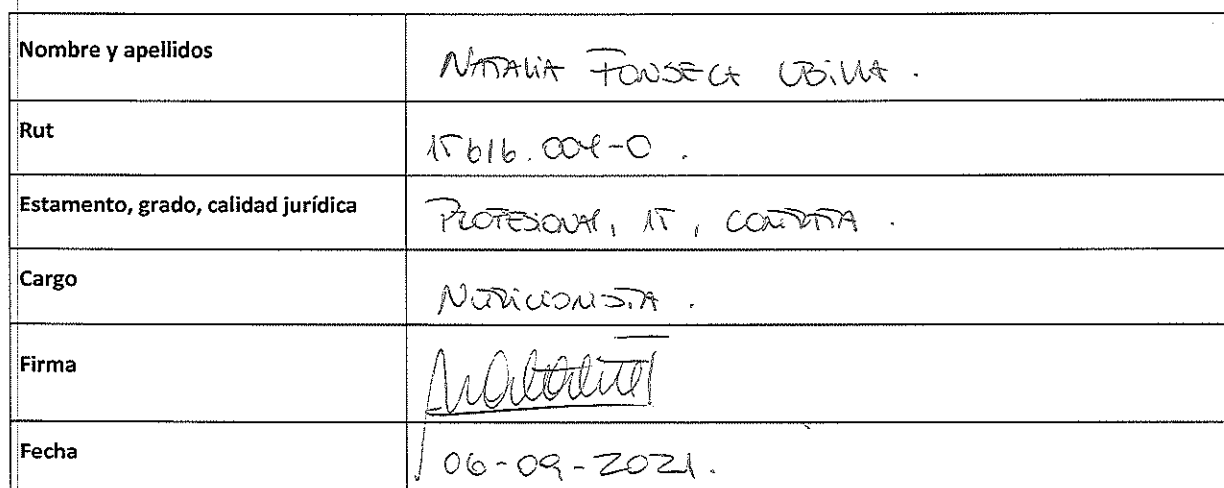 Nombre y apellidos
NATALIA FONSECA UBILLA.
Rut
15616.004-0.
Estamento, grado, calidad jurídica
PROFESIONAL, 15, CONTRATA.
Cargo
NUTRICIONISTA.
Firma
Fecha
06-09-2021.